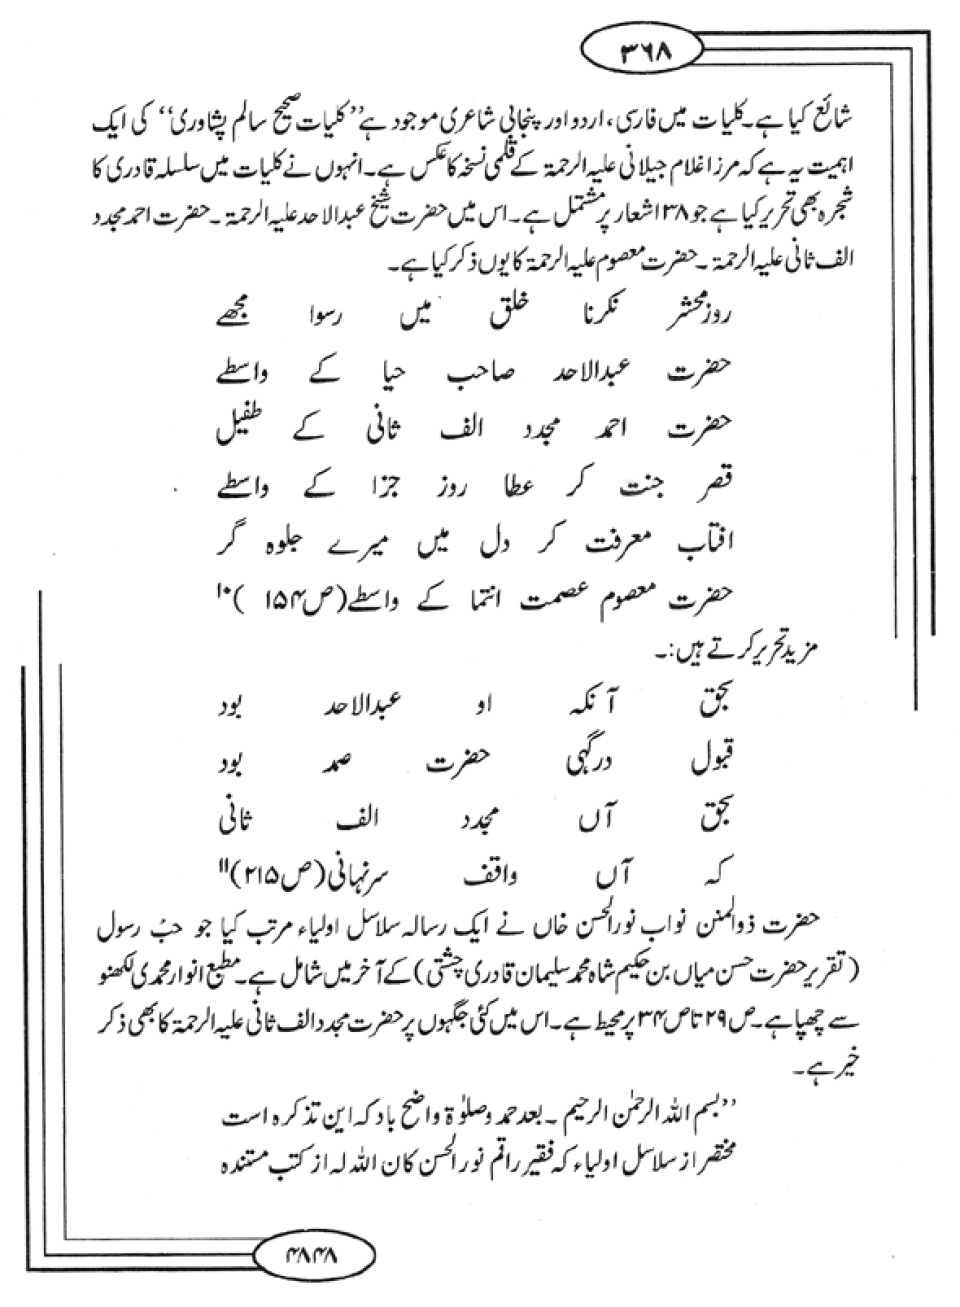 ۳۶۸
شائع کیا ہے۔ کلیات میں فارسی، اردو اور پنجابی شاعری موجود ہے ’’کلیات صحیح سالم پشاوری‘‘ کی ایک
اہمیت یہ ہے کہ مرزا غلام جیلانی علیہ الرحمۃ کے قلمی نسخہ کا عکس ہے۔ انہوں نے کلیات میں سلسلہ قادری کا
شجرہ بھی تحریر کیا ہے جو ۱۳۸ اشعار پر مشتمل ہے۔ اس میں حضرت شیخ عبدالاحد علیہ الرحمۃ ۔ حضرت احمد مجدد
الف ثانی علیہ الرحمۃ ۔ حضرت معصوم علیہ الرحمۃ کا یوں ذکر کیا ہے۔
روز محشر نکرنا خلق میں رسوا مجھے
حضرت عبدالاحد صاحب حیا کے واسطے
حضرت احمد مجدد الف ثانی کے طفیل
قصر جنت کر عطا روز جزا کے واسطے
افتاب معرفت کر دل میں میرے جلوہ گر
حضرت معصوم عصمت انتما کے واسطے (ص۱۵۴ )۱۰
مزید تحریر کرتے ہیں:۔
بحق آنکہ او عبدالاحد بود
قبول درگہی حضرت صمد بود
بحق آں مجدد الف ثانی
کہ آں واقف سرنہانی (ص۲۱۵)۱۱
حضرت ذوالمنن نواب نورالحسن خاں نے ایک رسالہ سلاسل اولیاء مرتب کیا جو حبُ رسول
(تقریر حضرت حسن میاں بن حکیم شاہ محمد سلیمان قادری چشتی) کے آخر میں شامل ہے۔ مطبع انوار محمدی لکھنو
سے چھپا ہے۔ ص۲۹ تا ص۳۴ پر محیط ہے۔ اس میں کئی جگہوں پر حضرت مجدد الف ثانی علیہ الرحمۃ کا بھی ذکر
خیر ہے۔
’’بسم اللہ الرحمٰن الرحیم ۔ بعد حمد وصلوٰۃ واضح باد کہ این تذکرہ است
مختصر از سلاسل اولیاء کہ فقیر راقم نورالحسن کان اللہ لہ از کتب مستندہ
۴۸۴۸